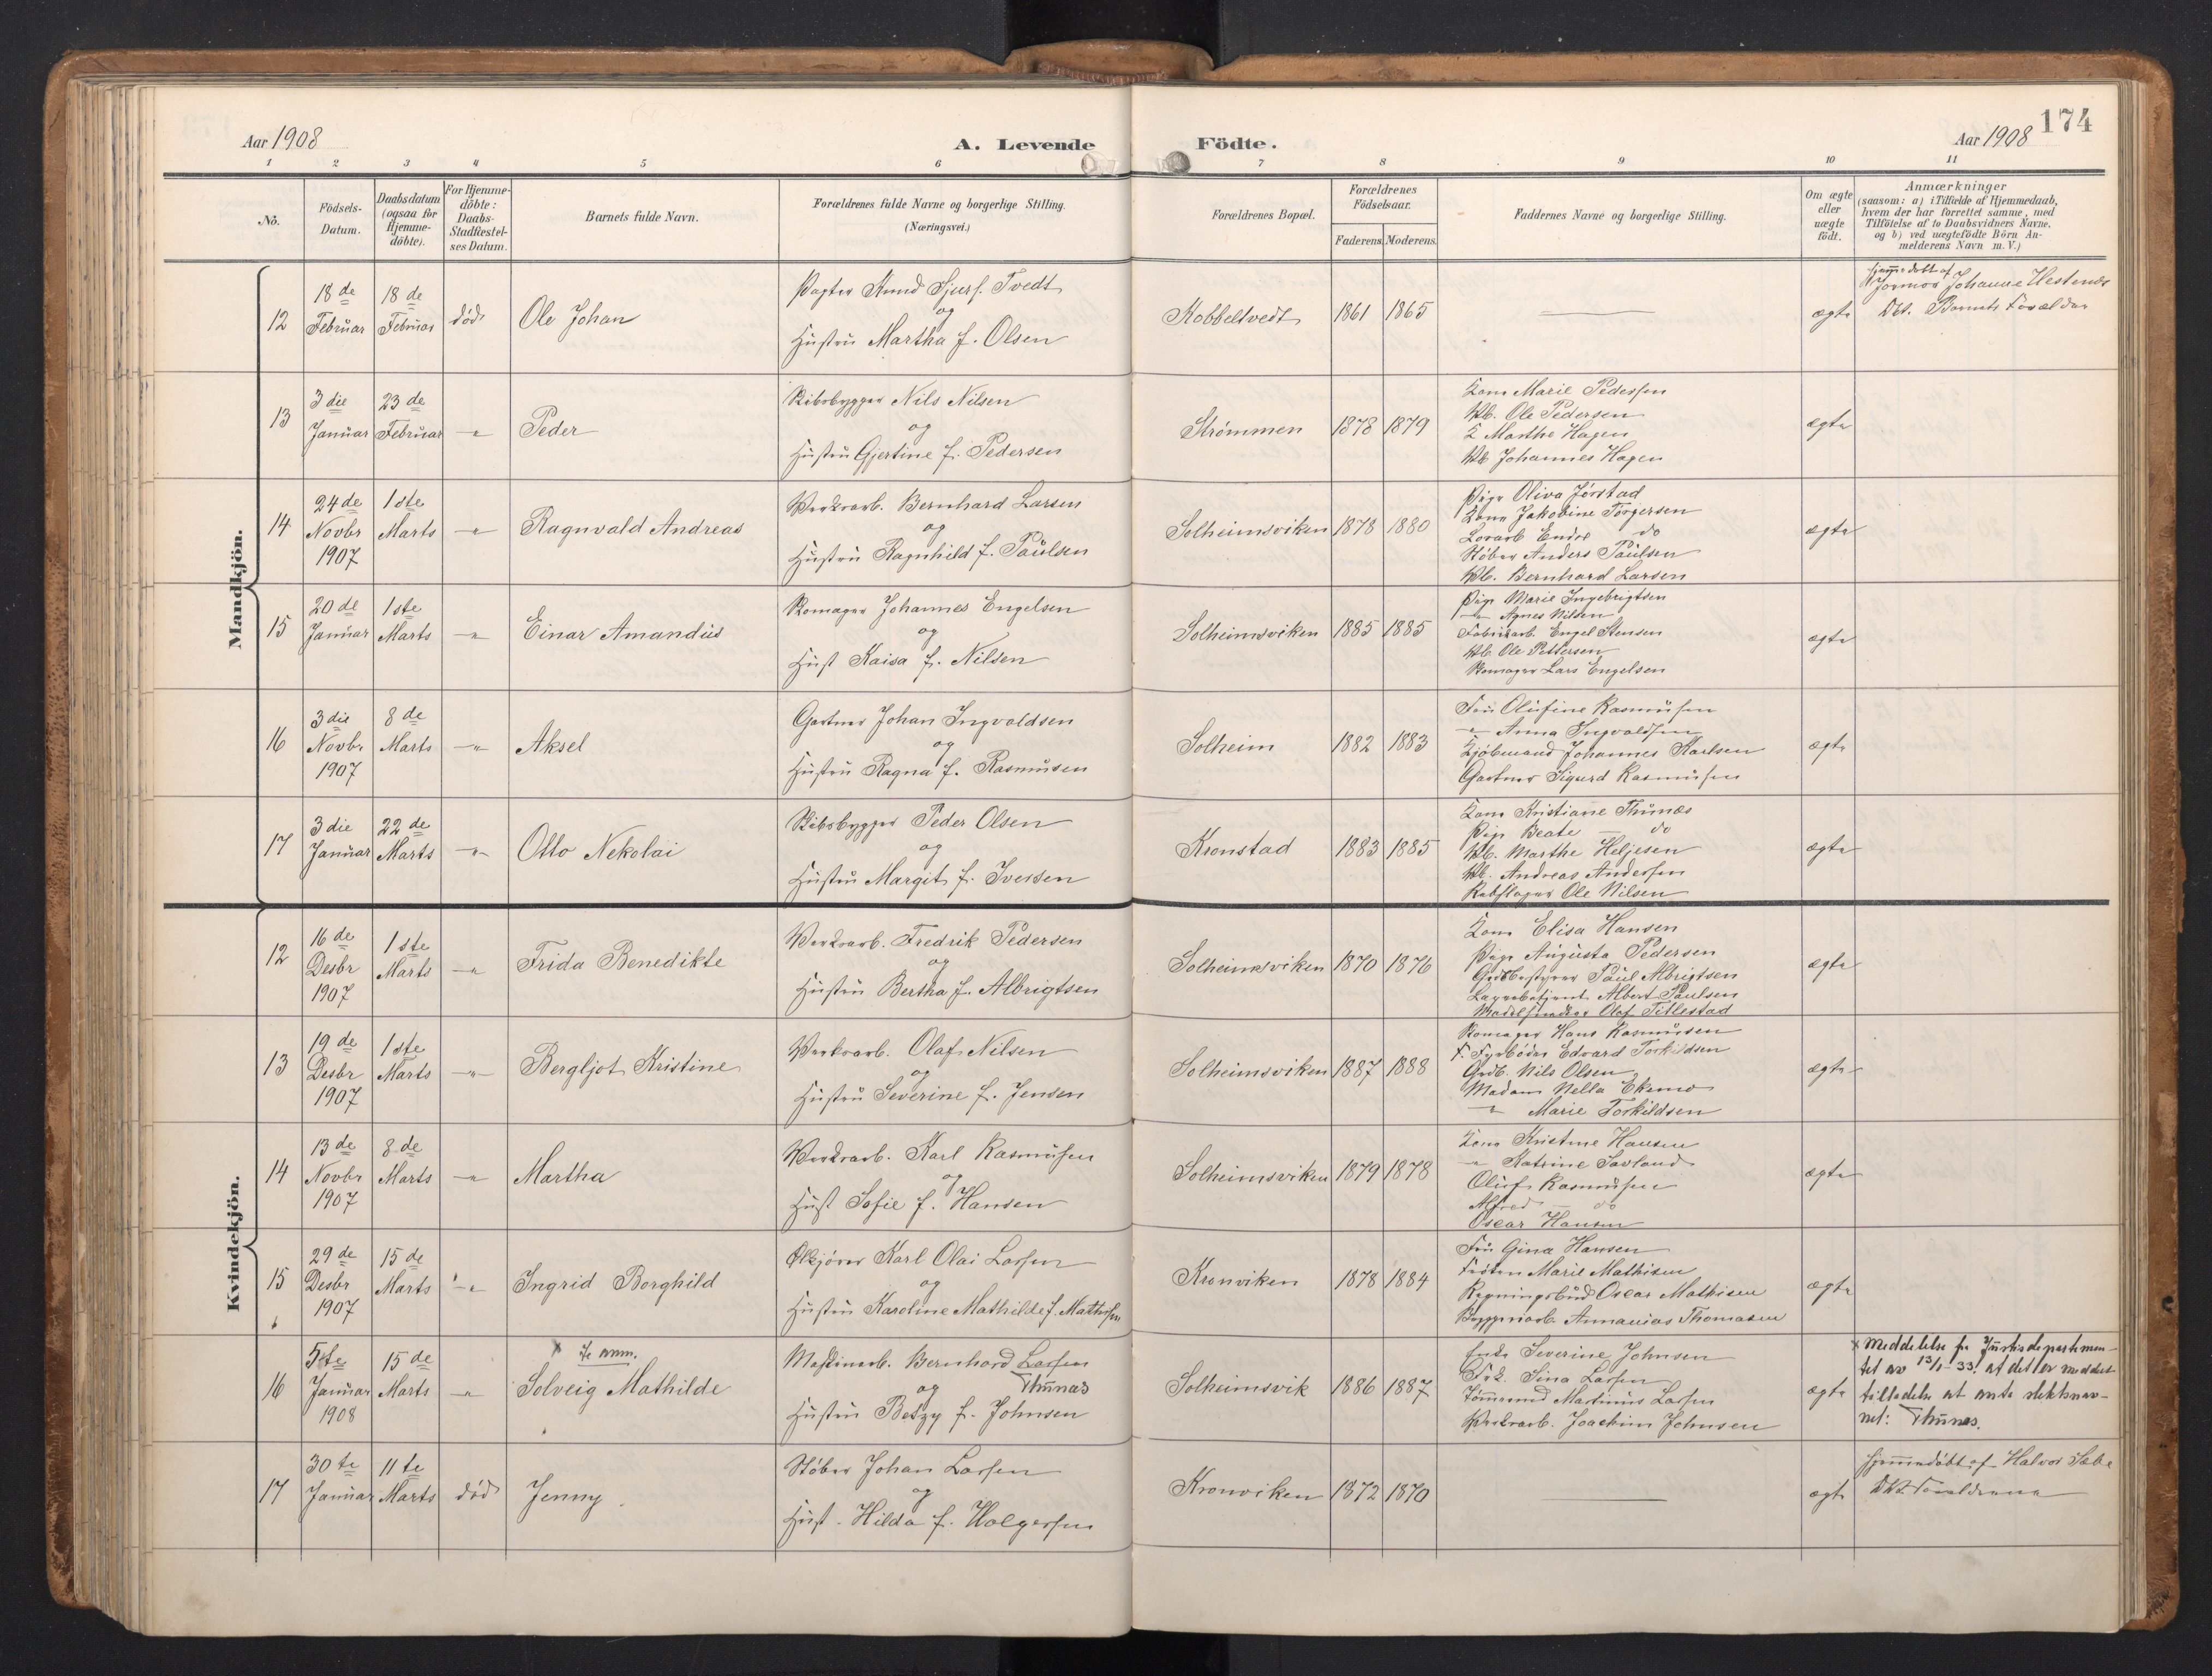 Aar 1908
A. Levende
Födte.
Aar 1908
174
1 2 3 4 5 6 7 8 9 10 11
No.
Födsels-
Datum.
Daabsdatum
(ogsaa for
Hjemme-
döbte).
For Hjemme-
döbte:
Daabs-
Stadfæstel-
ses Datum.
Barnets fulde Navn.
Forældrenes fulde Navne og borgerlige Stilling.
(Næringsvei.)
Forældrenes Bopæl.
Forældrenes
Födselsaar.
Faderens. Moderens.
Faddernes Navne og borgerlige Stilling.
Om ægte
eller
uægte
födt.
Anmærkninger
(saasom: a) i Tilfælde af Hjemmedaab,
hvem der har forrettet samme, med
Tilföielse af to Daabsvidners Navne,
og b) ved uægtefödte Börn An-
melderens Navn m. V.)
Mandkjön.
12
18 de
Februar
18 de
Februar
død
Ole Johan
Knud Sjurs. Tvedt
og
Hustru Martha f. Olsen
Kobbeltvedt
1861 1865
ægte
Hjemmedøbt af
Jormor Johanne Hestenes
Dbt. Barnets Forældre
13
3 die
Januar
23 de
Februar
"
Peder
Skibsbygger Nils Nilsen
og
Hustru Gjertine f. Pedersen
Strømmen
1878 1879
Kone Marie Pedersen
Ole Pedersen
K Marthe Hagen
Johannes Hagen
ægte
14
24 de
Novbr
1907
1ste
Marts
"
Ragnvald Andreas
Verksarb. Bernhard Larsen
og
Hustru Ragnhild f. Paulsen
Solheimsviken
1878 1880
Pige Oliva Jørstad
Kone Jakobine Torgersen
Endre do
Støber Anders Paulsen
Bernhard Larsen
ægte
15
20 de
Januar
1ste
Marts
"
Einar Amandus
Skomager Johannes Engelsen
og
Hust Kaisa f. Nilsen
Solheimsviken
1885 1885
Pige Marie Ingebrigtsen
" Agnes Nilsen
Fabrikarb. Engel Stensen
Ole Pettersen
Skomager Lars Engelsen
ægte
16
3 die
Novbr
1907
8 de
Marts
"
Aksel
Gartner Johan Ingvaldsen
og
Hustru Ragna f. Rasmusen
Solheim
1882 1883
Fru Olufine Rasmusen
" Anna Ingvaldsen
Kjøbmand Johannes Karlsen
Gartner Sigurd Rasmusen
ægte
17
3 die
Januar
22 de
Marts
"
Otto Nekolai
Skibsbygger Peder Olsen
og
Hustru Margit f. Iversen
Kronstad
1883 1885
Kone Kristiane Thunæs
Pige Beate — do
Marthe Heljesen
Andreas Andersen
Rebslager Ole Nilsen
ægte
Kvindekjön.
12
16 de
Desbr
1907
1ste
Marts
"
Frida Benedikte
Verksarb. Fredrik Pedersen
og
Hustru Bertha f. Albrigtsen
Solheimsviken
1870 1876
Kone Elisa Hansen
Pige Augusta Pedersen
Paul Albrigtsen
Albert Paulsen
Olaf Titlestad
ægte
13
19 de
Desbr
1907
1ste
Marts
"
Bergljot Kristine
Verksarb. Olaf Nilsen
og
Hustru Severine f. Jensen
Solheimsviken
1887 1888
Skomager Hans Rasmussen
F. Fyrbøder Edvard Torkildsen
Nils Olsen
Madam Nella Ekemo
" Marie Torkildsen
ægte
14
13 de
Novbr
1907
8 de
Marts
"
Martha
Verksarb. Karl Rasmusen
og
Hust Sofie f. Hansen
Solheimsviken
1879 1878
Kone Kristine Hansen
" Katrine Savland
Oluf Rasmusen
Alfred — do
Oscar Hansen
ægte
15
29 de
Desbr
1907
15 de
Marts
"
Ingrid Borghild
Ølkjører Karl Olai Larsen
og
Hustru Karoline Mathilde f. Mathisen
Kronviken
1878 1884
Fru Gina Hansen
Frøken Marie Mathisen
Regningsbud Oscar Mathisen
Annanias Thomasen
ægte
16
5te
Januar
1908
15 de
Marts
"
x Se anm.
Solveig Mathilde
Maskinarb. Bernhard Larsen
og Thunæs
Hustru Betzy f. Johnsen
Solheimsvik
1886 1887
Enke Severine Johnsen
Frk. Sina Larsen
Tømmermd Martinus Larsen
Verksarb. Joachim Johnsen
ægte
x Meddelelse fra Justisdepartemen-
tet av 13/1-33: at det er meddelt
tilladelse at anta slektsnav-
net: Thunæs.
17
30 te
Januar
11 te
Marts
død
Jenny
Støber Johan Larsen
og
Hust. Hilda f. Holgersen
Kronviken
1872 1870
ægte
Hjemmedøbt af Halvor Sabe
Dbt Forældrene